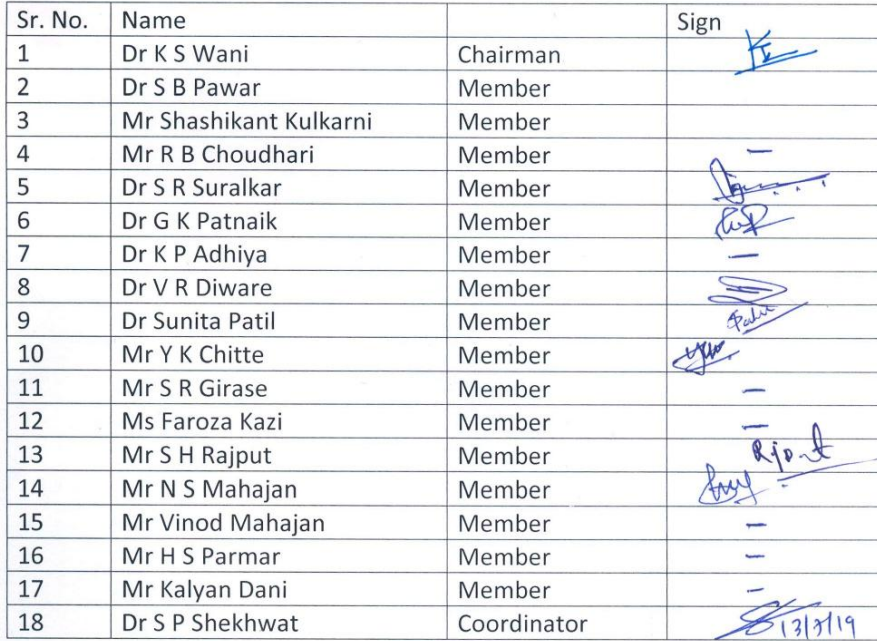 Sr. No. Name Sign
1 Dr K S Wani Chairman
2 Dr S B Pawar Member
3 Mr Shashikant Kulkarni Member
4 Mr R B Choudhari Member —
5 Dr S R Suralkar Member
6 Dr G K Patnaik Member
7 Dr K P Adhiya Member —
8 Dr V R Diware Member
9 Dr Sunita Patil Member
10 Mr Y K Chitte Member
11 Mr S R Girase Member —
12 Ms Faroza Kazi Member —
13 Mr S H Rajput Member
14 Mr N S Mahajan Member
15 Mr Vinod Mahajan Member —
16 Mr H S Parmar Member —
17 Mr Kalyan Dani Member —
18 Dr S P Shekhwat Coordinator 13/7/19